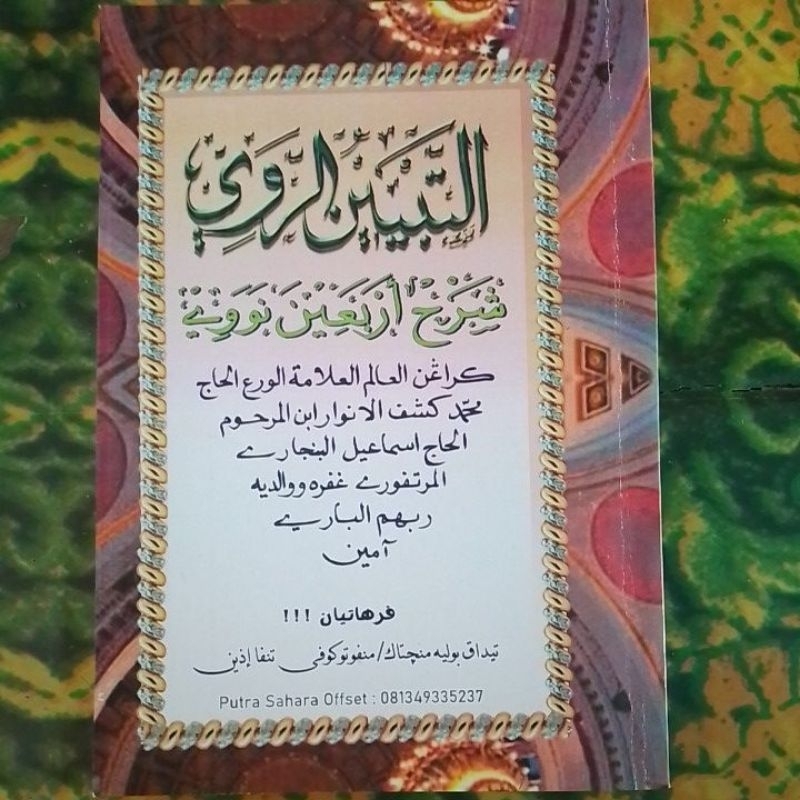 التَّبْيِيْنُ الرَّوِيّ
شَرْحُ أَرْبَعِيْنَ نَوَوِيْ
كراڠن العالم العلامة الورع الحاج
محمّد كشف الانوار ابن المرحوم
الحاج اسماعيل البنجاري
المرتفوري غفره ووالديه
ربهم الباري
آمين
فرهاتيان !!!
تيداق بوليه منچتاك/منفوتوكوفى تنفا إذين
Putra Sahara Offset : 081349335237